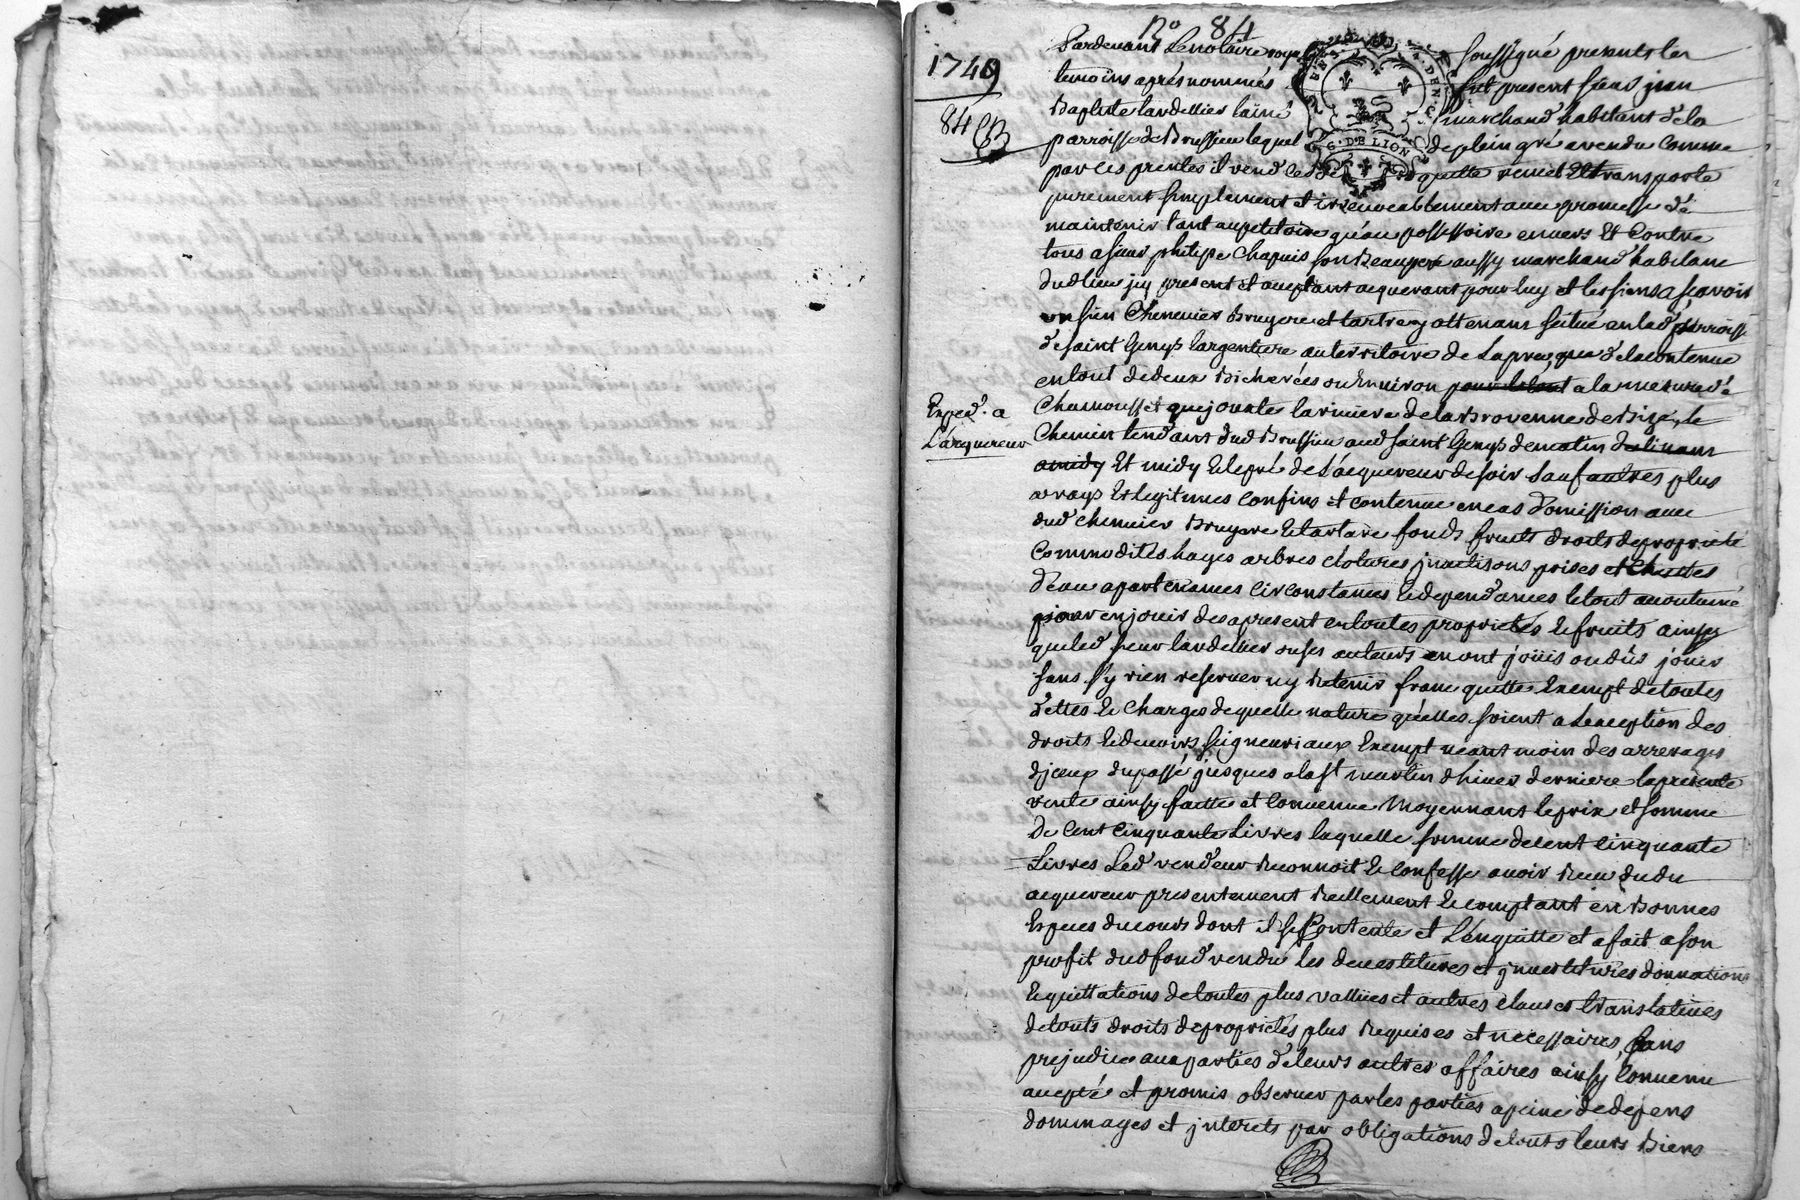 No 84
1749
84
Pardevant Le notaire royal soussigné presents les
temoins aprés nommés fut present sieur jean
Baptiste lardellier lainé marchand habitant de la
parroisse de Brussieu lequel de plein gré a vendu comme
par ces presentes il vend cede quitte remet Et transporte
purement simplement et irrevocablement avec promesse de
maintenir tant au petitoire qu'au possessoire envers Et Contre
tous a sieur philipe Chapuis son Beaupere aussy marchand habitant
dud lieu jcy present et acceptant acquerant pour luy et les siens a sçavoir
un sien Chenevier Bruyere et tartre y attenant situé en lad parroisse
de saint Genys largentiere au territoire de de la contenue
en tout de deux Bicherées ou Environ pour le tout a la mesure de
Chamousset que jouxte la riviere de la Brevenne de Bize, le
Expedé. a
L'acquereur
Chemin tendant dud Brussieu aud saint Genys de matin
a midy Et midy Et le pré de L'acquereur de soir sauf autres plus
vrays Et legitimes confins et contenue en cas d'omission avec
dud Chenevier Bruyere Et fonds fruits droits de proprieté
Commodités hayes arbres clotures prises et Chuttes
d'eau apartenances Circonstances Et dependances le tout accoutumé
pour en jouir des a present en toutes proprietés Et fruits ainsy
que led sieur lardellier ou ses auteurs en ont joüis ou dûs jouir
sans s'y rien reserver ny Retenir franc quitte Exempt de toutes
dettes Et Charges de quelle nature qu'elles soient a L'exception des
droits Et devoirs seigneuriaux Exempt neantmoin des arrerages
djceux du passé jusques a la st martin d'hiver derniere la presente
vente ainsy faitte et Convenue Moyennant le prix et somme
De Cent Cinquante Livres laquelle somme de cent cinquante
Livres Led vendeur Reconnoit Et Confesse avoir Receu dudu
acquereur presentement Reellement Et comptant en Bonnes
Especes du cours dont il se Contente et L'en quitte et a fait a son
profit dud fond vendu les devestitures et jnvestitures donnations
Et quittations de toutes plus vallües et autres clauses translatives
de touts droits de proprietés plus Requises et necessaires, Sans
prejudice aux parties de leurs autres affaires ainsy Convenu
accepté et promis observer par les parties a peine de depens
dommages et jnterets par obligations de touts leurs Biens
G. DE LION